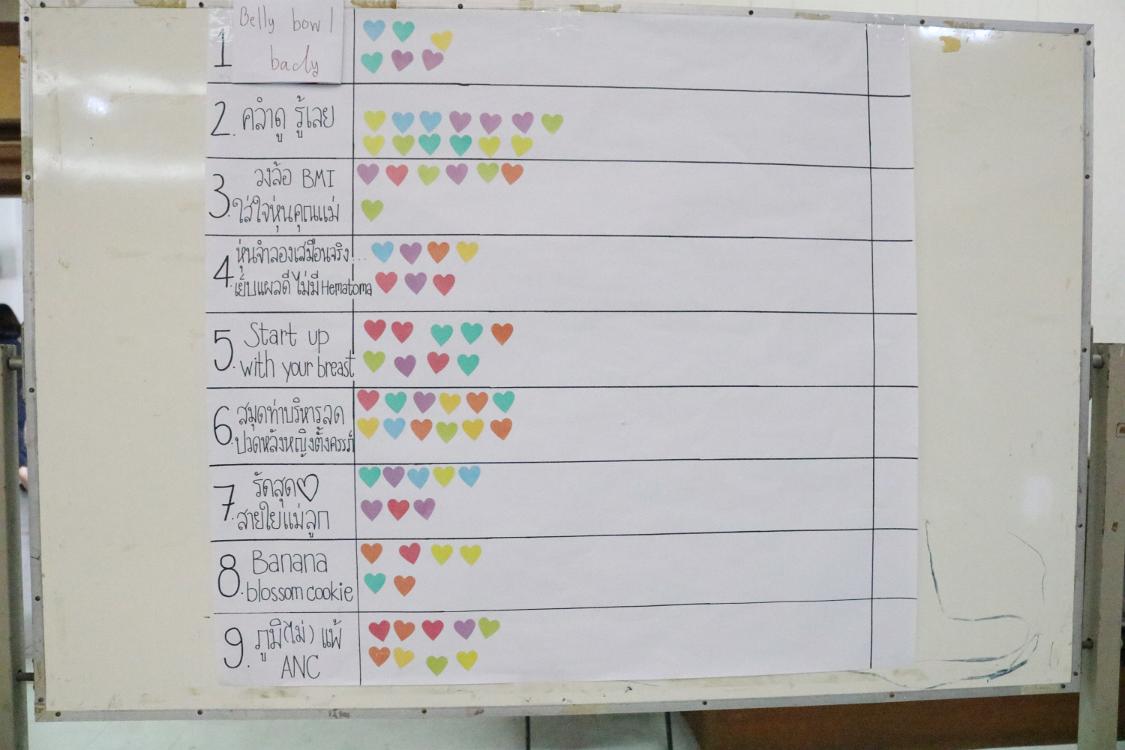 1
Belly bowl
bady
2. คลำดู รู้เลย
3. วงล้อ BMI
ใส่ใจหุ่นคุณแม่
4. หุ่นจำลองเสมือนจริง...
เย็บแผลดี ไม่มี Hematoma
5. Start up
with your breast
6. สมุดท่าบริหารลด
ปวดหลังหญิงตั้งครรภ์
7. รัดสุด♡
สายใยแม่ลูก
8. Banana
blossom cookie
9. ภูมิ(ไม่) แพ้
ANC